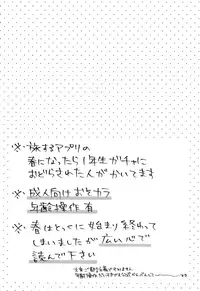 ※ 旅するアプリの
春になったら1年生がチャに
おどらされた人がかいてます
※ 成人向けおそカラ
年齢操作 有
※ 春はとっくに始まり終わって
しまいましたが広い心で
読んで下さい